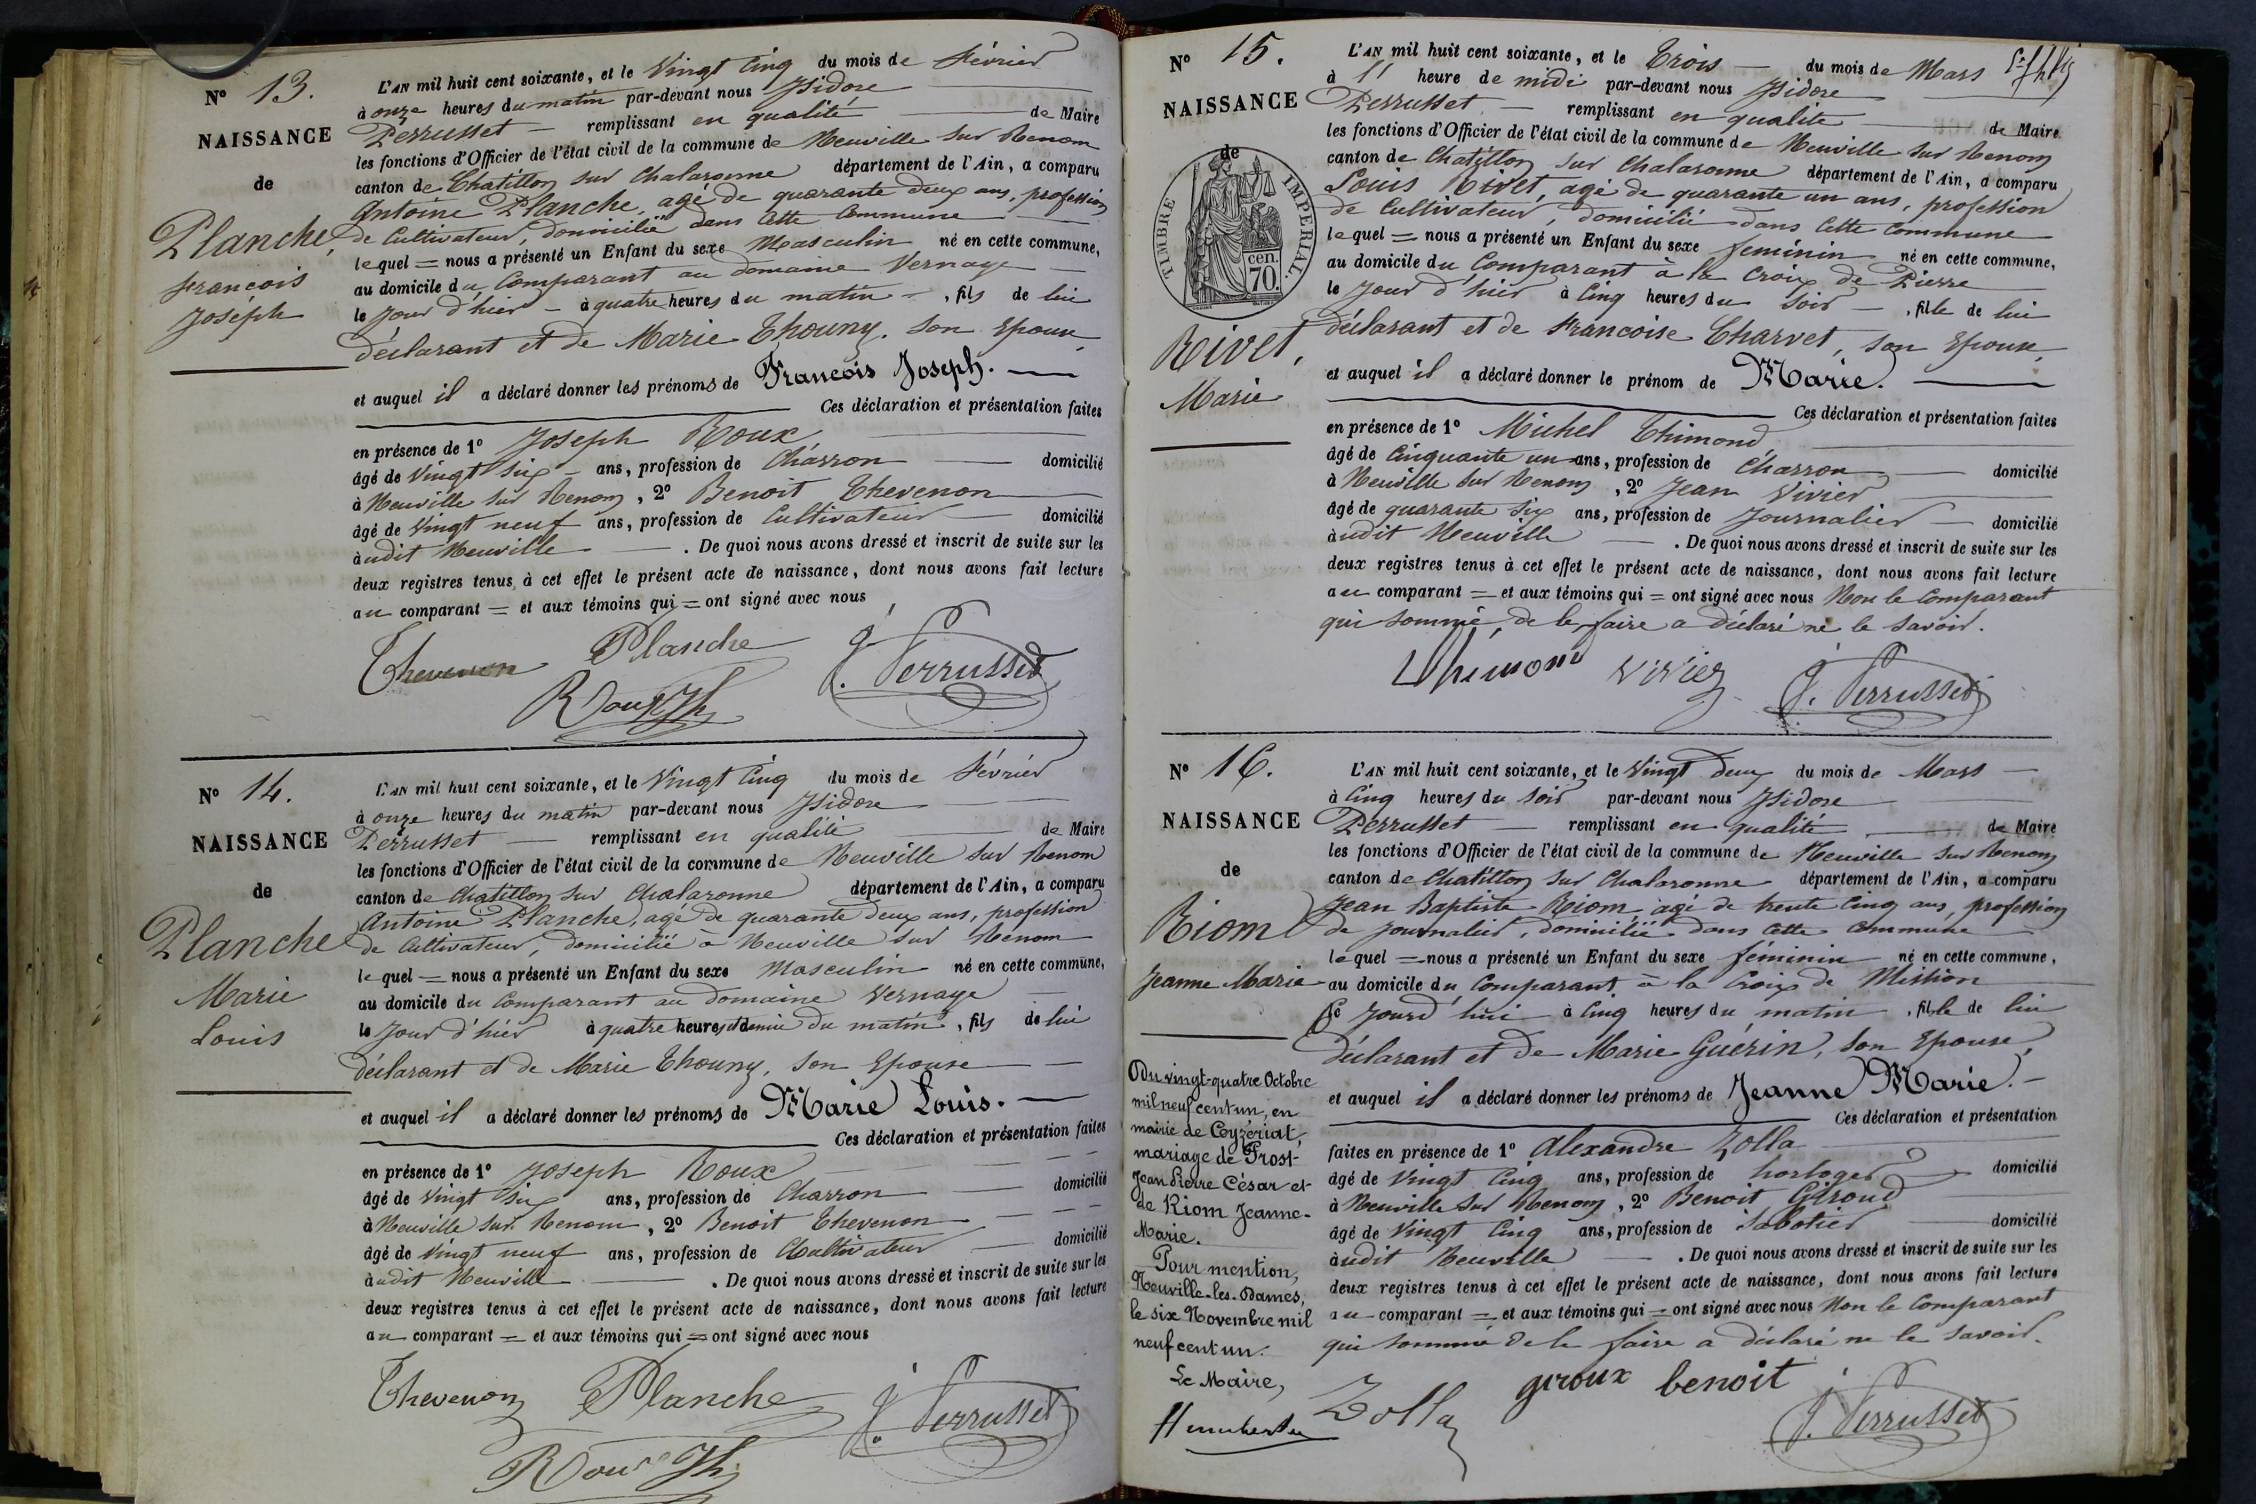 N° 13.
NAISSANCE
de
Planche,
francois
Joseph
L'AN mil huit cent soixante, et le Vingt Cinq du mois de février
à onze heures du matin par-devant nous Isidore
Perrusset — remplissant en qualité — de Maire
les fonctions d'Officier de l'état civil de la commune de Neuville sur Renom
canton de Chatillon sur Chalaronne département de l'Ain, a comparu
Antoine Planche, agé de quarante deux ans, profession
de Cultivateur, domicilié dans Cette Commune
lequel = nous a présenté un Enfant du sexe Masculin né en cette commune,
au domicile du Comparant au domaine Vernage
le Jour d'hier - à quatre heures du matin - , fils de lui
déclarant et de Marie Thouny, son Epouse,
et auquel il a déclaré donner les prénoms de Francois Joseph. —
Ces déclaration et présentation faites
en présence de 1° Joseph Roux
âgé de Vingt six - ans, profession de Charron — domicilié
à Neuville sur Renom, 2° Benoit Thevenon
âgé de Vingt neuf ans, profession de Cultivateur — domicilié
àudit Neuville — . De quoi nous avons dressé et inscrit de suite sur les
deux registres tenus à cet effet le présent acte de naissance, dont nous avons fait lecture
au comparant = et aux témoins qui = ont signé avec nous
Thevenon Planche J. Perrusset
Roux Jh
N° 14.
NAISSANCE
de
Planche
Marie
Louis
L'AN mil huit cent soixante, et le Vingt Cinq du mois de février
à onze heures du matin par-devant nous Isidore
Perrusset — remplissant en qualité — de Maire
les fonctions d'Officier de l'état civil de la commune de Neuville sur Renom
canton de Chatillon sur Chalaronne département de l'Ain, a comparu
Antoine Planche, agé de quarante deux ans, profession
de Cultivateur, domicilié à Neuville sur Renom
lequel = nous a présenté un Enfant du sexe Masculin né en cette commune,
au domicile du Comparant au domaine Vernage
le Jour d'hier à quatre heures et demie du matin, fils de lui
déclarant et de Marie Thouny, son Epouse
et auquel il a déclaré donner les prénoms de Marie Louis. —
Ces déclaration et présentation faites
en présence de 1° Joseph Roux
âgé de Vingt six ans, profession de Charron — domicilié
à Neuville sur Renom, 2° Benoit Thevenon
âgé de Vingt neuf ans, profession de Cultivateur — domicilié
àudit Neuville — . De quoi nous avons dressé et inscrit de suite sur les
deux registres tenus à cet effet le présent acte de naissance, dont nous avons fait lecture
au comparant = et aux témoins qui = ont signé avec nous
Thevenon Planche J. Perrusset
Roux Jh
N° 15.
NAISSANCE
de
TIMBRE IMPERIAL.
70. cen.
Rivet,
Marie
L'AN mil huit cent soixante, et le Trois — du mois de Mars
à 1' heure de midi par-devant nous Isidore
Perrusset — remplissant en qualité — de Maire
les fonctions d'Officier de l'état civil de la commune de Neuville sur Renom
canton de Chatillon sur Chalaronne département de l'Ain, a comparu
Louis Rivet, agé de quarante un ans, profession
de Cultivateur, domicilié dans Cette Commune
lequel = nous a présenté un Enfant du sexe féminin né en cette commune,
au domicile du Comparant à la Croix de Pierre
le Jour d'hier à Cinq heures du Soir — , fille de lui
déclarant et de Francoise Charvet, son Epouse,
et auquel il a déclaré donner le prénom de Marie. —
Ces déclaration et présentation faites
en présence de 1° Michel Thimond
âgé de Cinquante un ans, profession de Charron — domicilié
à Neuville sur Renom, 2° Jean Vivier
âgé de quarante six ans, profession de Journalier — domicilié
àudit Neuville — . De quoi nous avons dressé et inscrit de suite sur les
deux registres tenus à cet effet le présent acte de naissance, dont nous avons fait lecture
au comparant = et aux témoins qui = ont signé avec nous Non le Comparant
qui sommé de le faire a déclaré ne le savoir.
Thimond Vivier J. Perrusset
N° 16.
NAISSANCE
de
Riom
Jeanne Marie
L'AN mil huit cent soixante, et le Vingt deux du mois de Mars —
à Cinq heures du Soir par-devant nous Isidore
Perrusset — remplissant en qualité — de Maire
les fonctions d'Officier de l'état civil de la commune de Neuville sur Renom
canton de Chatillon sur Chalaronne département de l'Ain, a comparu
Jean Baptiste Riom, agé de trente Cinq ans, profession
de journalier, domicilié dans Cette Commune
lequel = nous a présenté un Enfant du sexe féminin né en cette commune,
au domicile du Comparant à la Croix de Mission
Ce Jourd'hui à Cinq heures du matin , fille de lui
déclarant et de Marie Guérin, son Epouse,
et auquel il a déclaré donner les prénoms de Jeanne Marie. —
Ces déclaration et présentation
faites en présence de 1° Alexandre Zolla
âgé de Vingt Cinq ans, profession de horloger — domicilié
à Neuville sur Renom, 2° Benoit Giroud
âgé de Vingt Cinq ans, profession de Sabotier — domicilié
àudit Neuville — . De quoi nous avons dressé et inscrit de suite sur les
deux registres tenus à cet effet le présent acte de naissance, dont nous avons fait lecture
au comparant = et aux témoins qui = ont signé avec nous Non le Comparant
qui sommé de le faire a déclaré ne le savoir.
Zolla giroux benoit J. Perrusset
Du vingt-quatre Octobre
mil neuf cent un, en
mairie de Ceyzériat,
mariage de Prost
Jean Pierre César et
de Riom Jeanne-
Marie.
Pour mention,
Neuville-les-Dames,
le six Novembre mil
neuf cent un.
Le Maire,